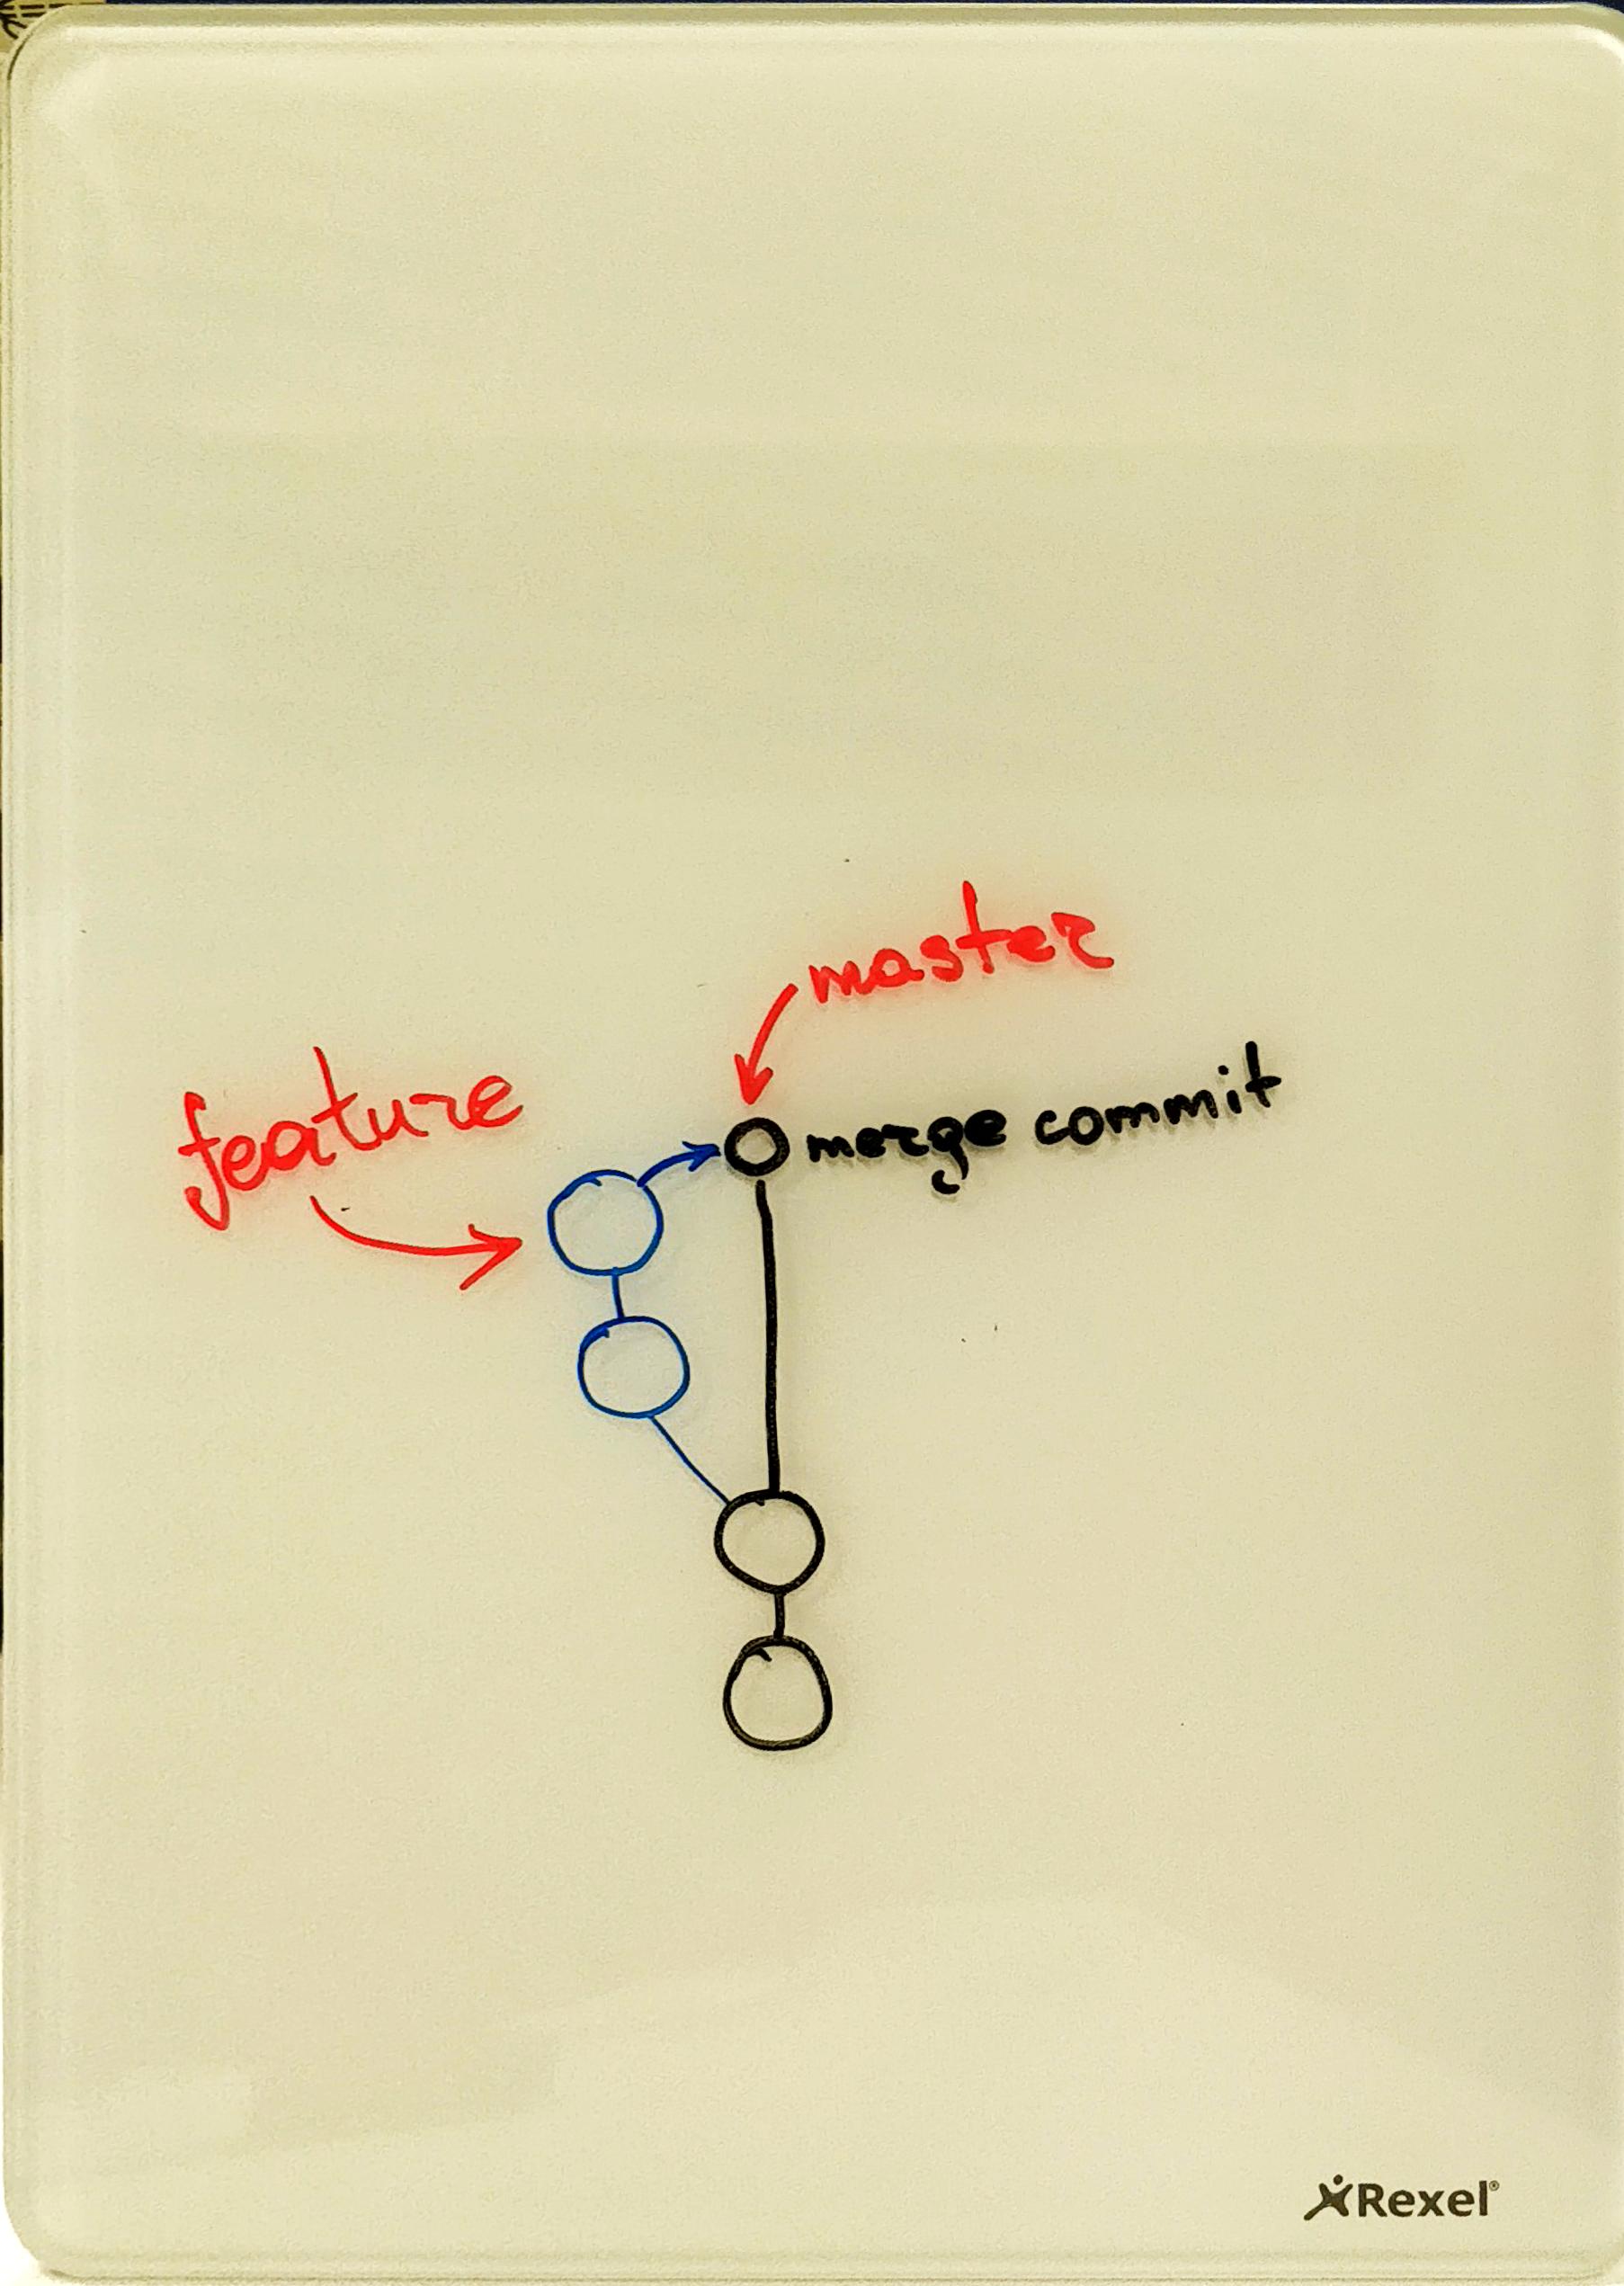 master
feature
merge commit
Rexel®